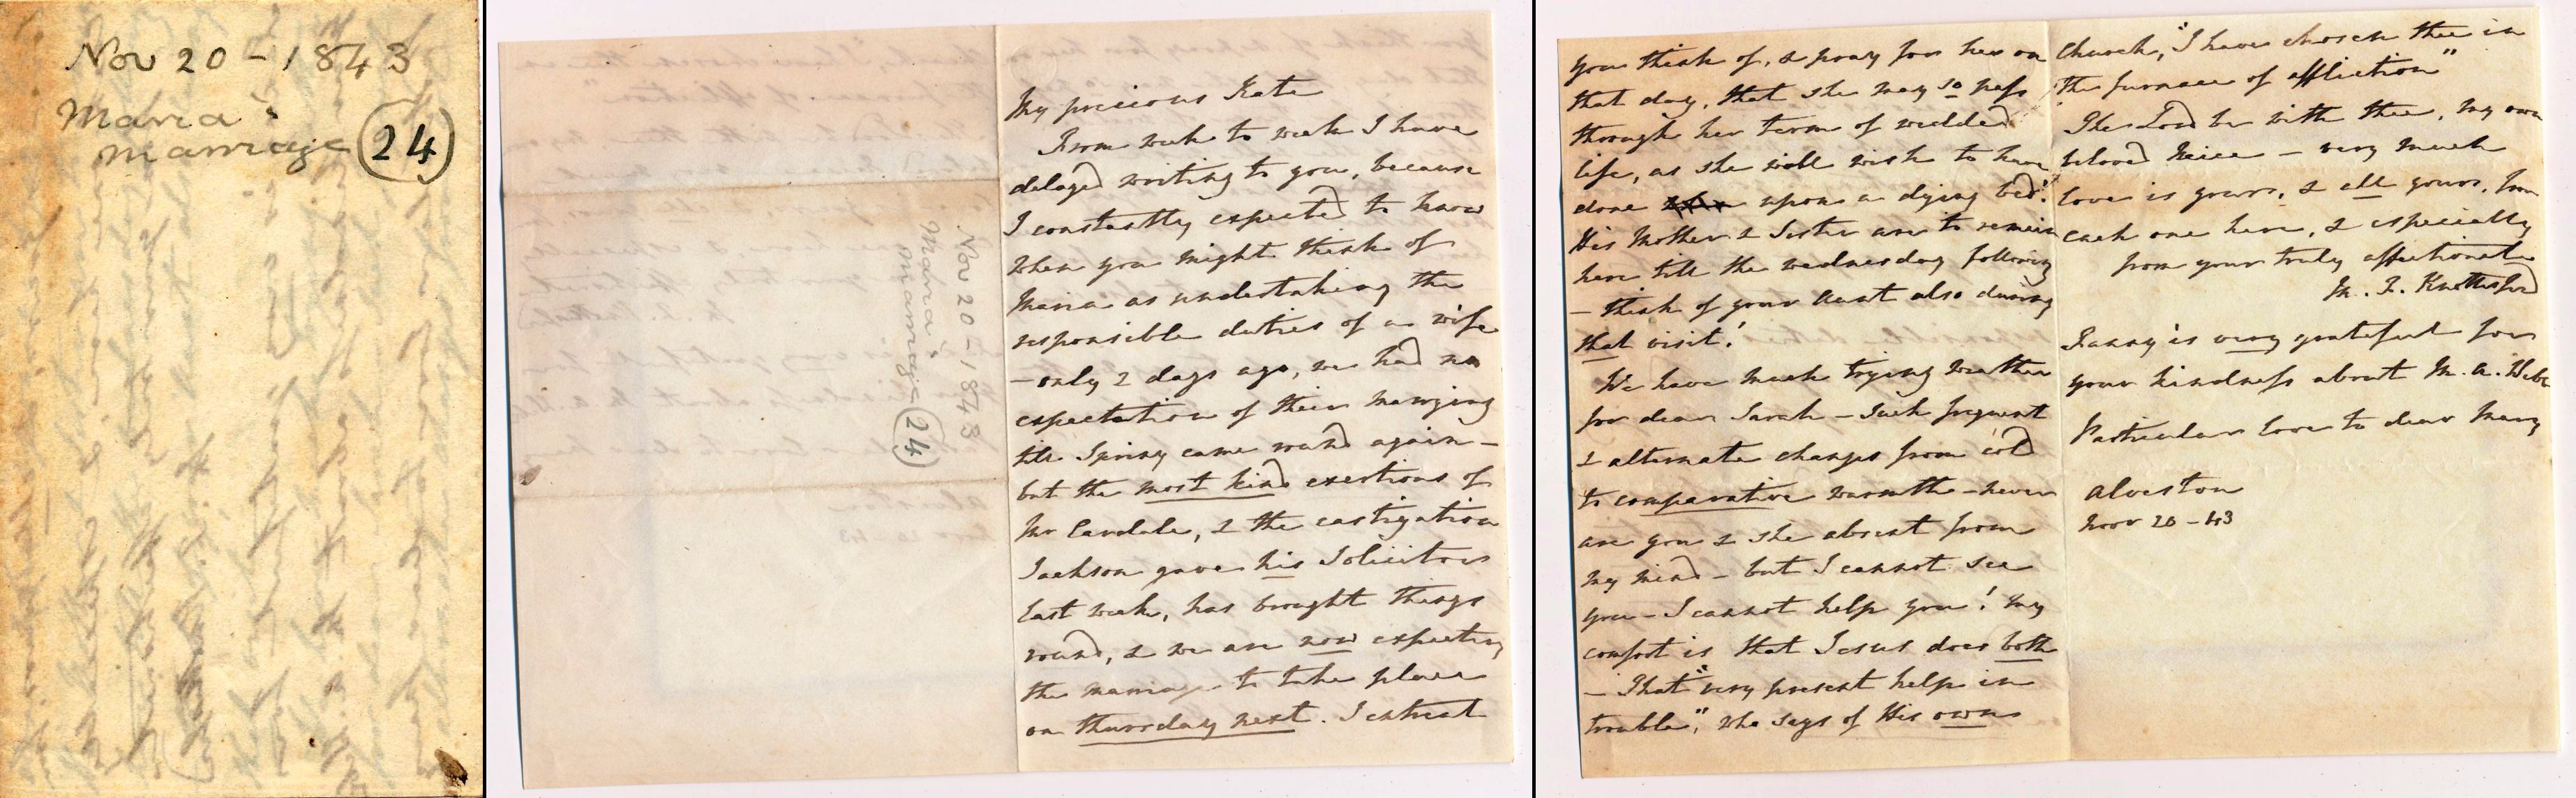 Nov 20 - 1843
Maria's
Marriage (24)
My precious Kate
From week to week I have
delayed writing to you, because
I constantly expected to know
when you might think of
Maria as undertaking the
responsible duties of a wife
- only 2 days ago, we had no
expectation of their marrying
till Spring came round again -
but the most kind exertions of
Mr Cardale, & the castigation
Jackson gave his Solicitors
last week, has brought things
round, & we are now expecting
the marriage to take place
on thursday next. I entreat
Nov 20 - 1843
Maria's
Marriage (24)
you think of, & pray for her on
that day, that she may so pass
through her term of wedded
life, as she will wish to have
done upon a dying bed!
His Mother & Sister are to remain
here till the wednesday following
- think of your Aunt also during
that visit!
We have much trying weather
for dear Sarah - Such frequent
& alternate changes from cold
to comparative warmth - never
are you & she absent from
my mind - but I cannot see
you - I cannot help you! My
comfort is that Jesus does both
- That "very present help in
trouble", who says of His own
Church, "I have chosen thee in
the furnace of affliction"
The Lord be with thee, my own
beloved Niece - very much
love is yours, & all yours, from
each one here, & especially
from your truly affectionate
M. F. Knottesford
Fanny is very grateful for
your kindness about M. A. Webb
Particular love to dear Mary
Alveston
Novr 20 - 43